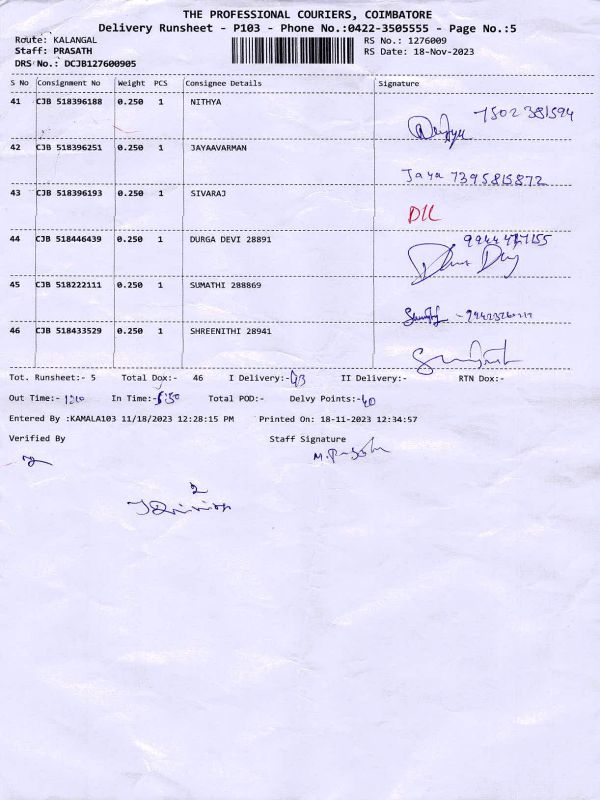 THE PROFESSIONAL COURIERS, COIMBATORE
Delivery Runsheet - P103 - Phone No.:0422-3505555 - Page No.:5
Route: KALANGAL RS No.: 1276009
Staff: PRASATH RS Date: 18-Nov-2023
DRS No.: DCJB127600905
S No Consignment No Weight PCS Consignee Details Signature
41 CJB 518396188 0.250 1 NITHYA 7502381594
42 CJB 518396251 0.250 1 JAYAAVARMAN Jaya 7395815872
43 CJB 518396193 0.250 1 SIVARAJ
44 CJB 518446439 0.250 1 DURGA DEVI 28891
45 CJB 518222111 0.250 1 SUMATHI 288869
46 CJB 518433529 0.250 1 SHREENITHI 28941
Tot. Runsheet:- 5 Total Dox:- 46 I Delivery:- II Delivery:- RTN Dox:-
Out Time:- In Time:- Total POD:- Delvy Points:- 40
Entered By :KAMALA103 11/18/2023 12:28:15 PM Printed On: 18-11-2023 12:34:57
Verified By Staff Signature
2